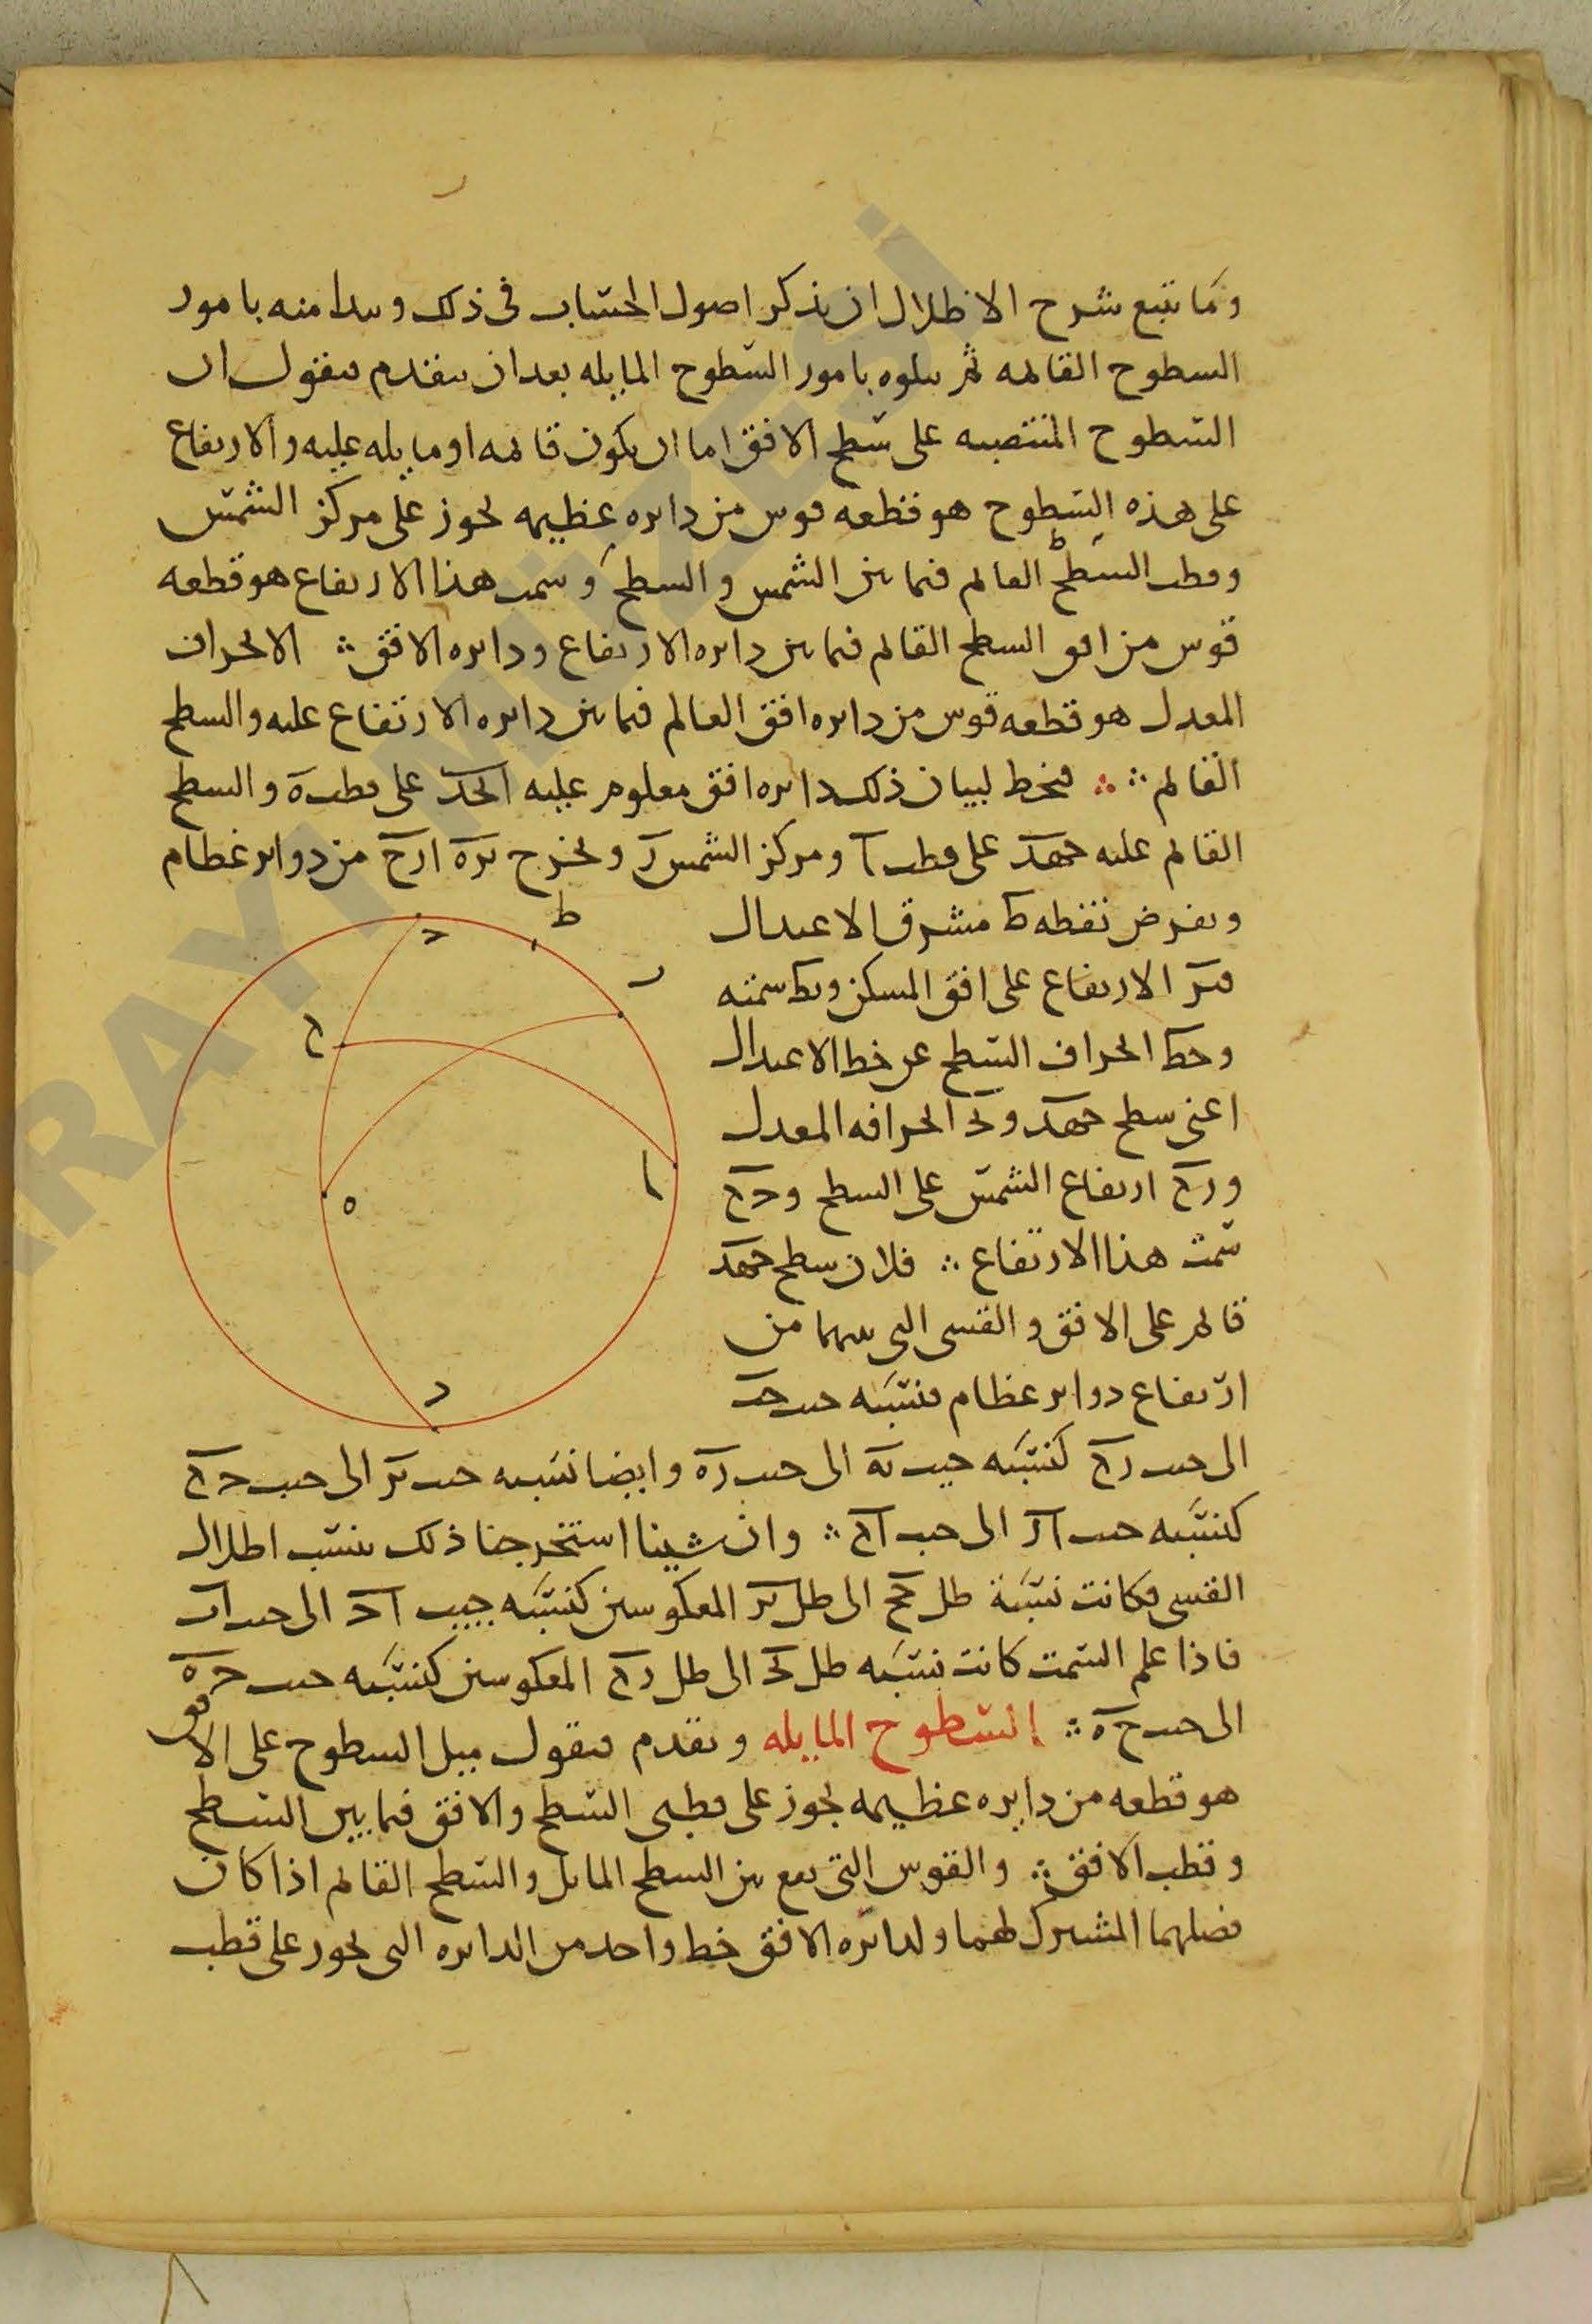 ومما يتبع شرح الاظلال ان نذكر اصول الحساب فى ذلك ونبدا منه بامور
السطوح القائمه ثم نتلوه بامور السطوح المايله بعد ان نتقدم فنقول ان
السطوح المنتصبه على سطح الافق اما ان يكون قائمه او مايله عليه والارتفاع
على هذه السطوح هو قطعه قوس من دايره عظيمه تجوز على مركز الشمس
وقطب السطح القائم فيما بين الشمس والسطح وسمت هذا الارتفاع هو قطعه
قوس من افق السطح القائم فيما بين دايره الارتفاع ودايره الافق ∴ الانحراف
المعدل هو قطعه قوس من دايره افق العالم فيما بين دايره الارتفاع عليه والسطح
القائم ∴ ∴ فنخط لبيان ذلك دايره افق معلوم عليه على قطب ه والسطح
القائم عليه جهد على قطب ا ومركز الشمس ر ونخرج ره ارح من دواير عظام
ونفرض نقطه ط مشرق الاعتدال
الارتفاع على افق المسكن سمته
وحط انحراف السطح عن خط الاعتدال
اعنى سطح جهد انحرافه المعدل
ورح ارتفاع الشمس على السطح وحح
سمت هذا الارتفاع ∴ فلان سطح جهد
قائم على الافق والقسى التى من
ارتفاع دواير عظام فنسبه جيب
الى جيب رح كنسبه جيب الى جيب ره وايضا نسبه جيب الى جيب حح
كنسبه جيب ار الى جيب اح ∴ وان شينا استخرجنا ذلك بنسب اظلال
القسى فكانت نسبة ظل الى ظل المعكوسين كنسبه جيب الى جيب
فاذا علم السمت كانت نسبه ظل الى ظل رح المعكوسين كنسبه جيب
الى جيب ح ه ∴ السطوح المايله ونقدم فنقول ميل السطوح على الافق
هو قطعه من دايره عظيمه تجوز على قطبى السطح والافق فيما بين السطح
وقطب الافق ∴ والقوس التى تقع بين السطح المائل والسطح القائم اذا كان
فصلهما المشترك لهما ولدائره الافق خط واحد من الدايره التى تجوز على قطب
ط
ح
ر
ح
ا
ه
د